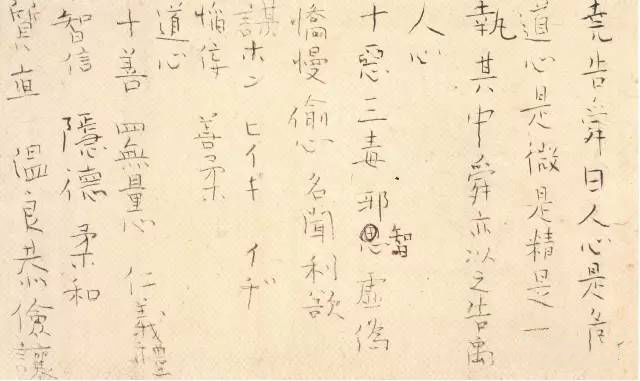 堯告舜曰人心是危
道心是微是精是一
執其中舜亦以之告禹
人心
十惡三毒邪智虚偽
憍慢偸心名聞利欲
謀ホン ヒイキ イヂ
佞 善柔
道心
十善 四無量心 仁義禮
智信 隱德 柔和
質直 温良恭儉讓